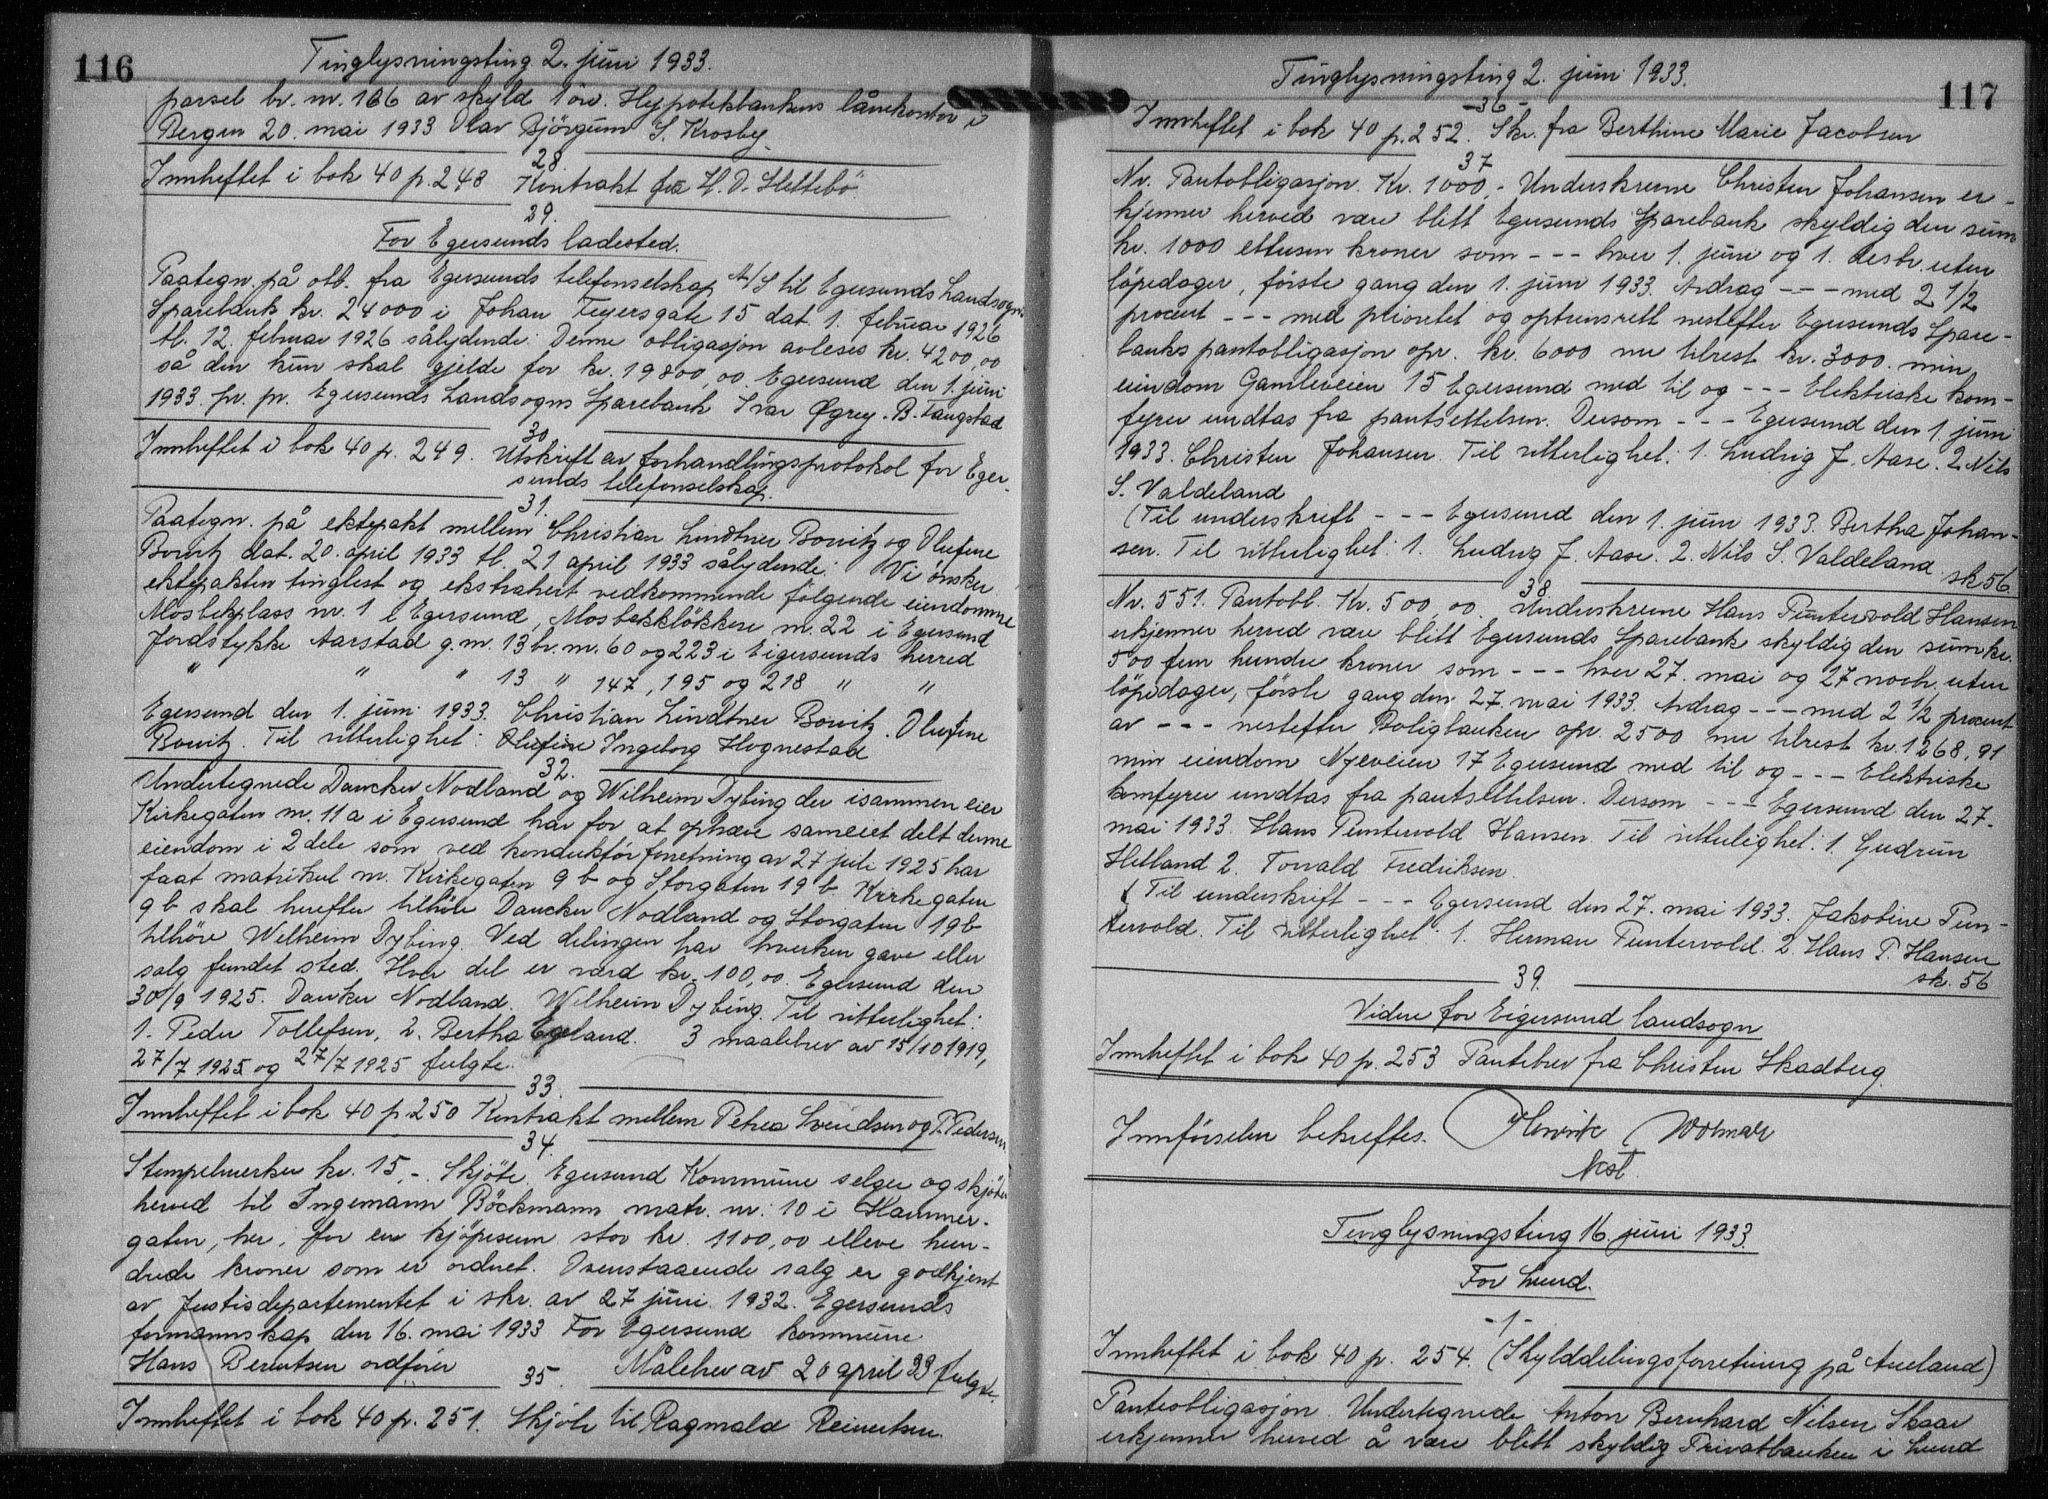 116
Tinglysningsting 2. juni 1933.
parsel br. nr. 166 av skyld 1 øre. Hypotekbankens lånekontor i
Bergen 20. mai 1933 Olav Bjørgum S. Krosby.
28.
Innheftet i bok 40 p. 248 Kontrakt fra H. O. Hettebö.
29.
For Egersunds ladested.
Paategn. på obl. fra Egersunds telefonselskap A/S til Egersunds Landsogns
Sparebank kr. 24000 i Johan Feyersgate 15 dat. 1. februar 1926
tl. 12. februar 1926 sålydende: Denne obligasjon avleses kr. 4200,00
så den kun skal gjelde for kr. 19800,00. Egersund den 1. juni
1933. pr. pr. Egersunds Landsogns Sparebank Ivar Øgrey. B. Tangstad
30
Innheftet i bok 40 p. 249. Utskrift av forhandlingsprotokol for Eger-
sunds telefonselskap.
31.
Paategn. på ektepakt mellem Christian Lindtner Bowitz og Olufine
Bowitz dat. 20. april 1933 tl. 21 april 1933 sålydende: Vi ønsker
ektepakten tinglest og ekstrahert vedkommende følgende eiendomme
Mosbekplass nr. 1 i Egersund, Mosbekkløkken nr. 22 i Egersund
Jordstykke Aarstad g. nr. 13 br. nr. 60 og 223 i Eigersunds herred
" " " 13 " 147, 195 og 218 " "
Egersund den 1. juni 1933. Christian Lindtner Bowitz. Olufine
Bowitz. Til vitterlighet: Olufine Ingeborg Hognestad
32.
Undertegnede Dancker Nodland og Wilhelm Dybing der isammen eier
Kirkegaten nr. 11a i Egersund har for at ophæve sameiet delt denne
eiendom i 2 dele som ved konduktörforretning av 27 juli 1925 har
faat matrikul nr. Kirkegaten 9 b og Storgaten 19 b. Kirkegaten
9 b skal herefter tilhöre Dancker Nodland og Storgaten 19 b
tilhöre Wilhelm Dybing. Ved delingen har hverken gave eller
salg fundet sted. Hver del er værd kr. 100,00. Egersund den
30/9 1925. Dancker Nodland. Wilhelm Dybing. Til vitterlighet:
1. Peder Tollefsen, 2. Bertha Egeland. 3 maalebrev av 15/10 1919,
27/7 1925 og 27/7 1925 fulgte.
33.
Innheftet i bok 40 p 250 Kontrakt mellem Petrea Svendsen og P. Pedersen
34.
Stempelmerker kr. 15,-. Skjöte. Egersund Kommune selger og skjöter
herved til Ingemann Böckmann matr. nr. 10 i Hammer-
gaten, her, for en kjöpesum stor kr. 1100,00 elleve hun-
drede kroner som er ordnet. Ovenstaaende salg er godkjent
av Justisdepartementet i skr. av 27 juni 1932. Egersunds
formannskap den 16. mai 1933 For Egersund kommune
Hans Berentsen ordförer
Målebrev av 20 april 33 fulgte.
35.
Innheftet i bok 40 p. 251. Skjöte til Ragnvald Reinertsen.
117
Tinglysningsting 2. juni 1933.
-36-
Innheftet i bok 40 p. 252. Skr. fra Berthine Marie Jacobsen
37
Nr. Pantobligasjon. Kr. 1000,- Underskrevne Christen Johansen er-
kjenner herved være blitt Egersunds Sparebank skyldig den sum
kr. 1000 ettusen kroner som --- hver 1. juni og 1. desbr. uten
löpedager, förste gang den 1. juni 1933. Avdrag --- med 2 1/2
procent --- med prioritet og optrinsrett nestefter Egersunds Spare-
banks pantobligasjon opr. kr. 6000 nu tilrest kr. 3000. min
eiendom Gamleveien 15 Egersund med til og --- Elektriske kom-
fyrer undtas fra pantsettelsen. Dersom --- Egersund den 1. juni
1933. Christen Johansen. Til vitterlighet: 1. Ludvig J. Aase. 2. Nils
S. Valdeland
(Til underskrift --- Egersund den 1. juni 1933. Bertha Johan-
sen. Til vitterlighet: 1. Ludvig J. Aase. 2. Nils S. Valdeland. sk 56
38.
Nr. 551. Pantobl. Kr. 500,00. Underskrevne Hans Puntervold Hansen
erkjenner herved være blitt Egersunds Sparebank skyldig den sum kr.
500 fem hundre kroner som --- hver 27. mai og 27 novbr. uten
löpedager, förste gang den 27. mai 1933. Avdrag --- med 2 1/2 procent
av --- nestefter Boligbanken opr. 2500 nu tilrest kr. 1268,91
min eiendom Nyeveien 17 Egersund med til og --- Elektriske
komfyrer undtas fra pantsettelsen. Dersom --- Egersund den 27.
mai 1933. Hans Puntervold Hansen. Til vitterlighet: 1. Gudrun
Hetland 2. Torvald Fredriksen.
(Til underskrift --- Egersund den 27. mai 1933. Jakobine Pun-
tervold. Til vitterlighet: 1. Herman Puntervold. 2. Hans P. Hansen
sk. 56
39.
Videre for Eigersund landsogn
Innheftet i bok 40 p. 253 Pantebrev fra Christen Skadberg.
Innförselen bekreftes.
Tinglysningsting 16. juni 1933.
For Lund.
-1-
Innheftet i bok 40 p. 254. (Skylddelingsforretning på Aueland)
Panteobligasjon. Undertegnede Anton Bernhard Nilsen Skaar
erkjenner herved å være blitt skyldig Privatbanken i Lund